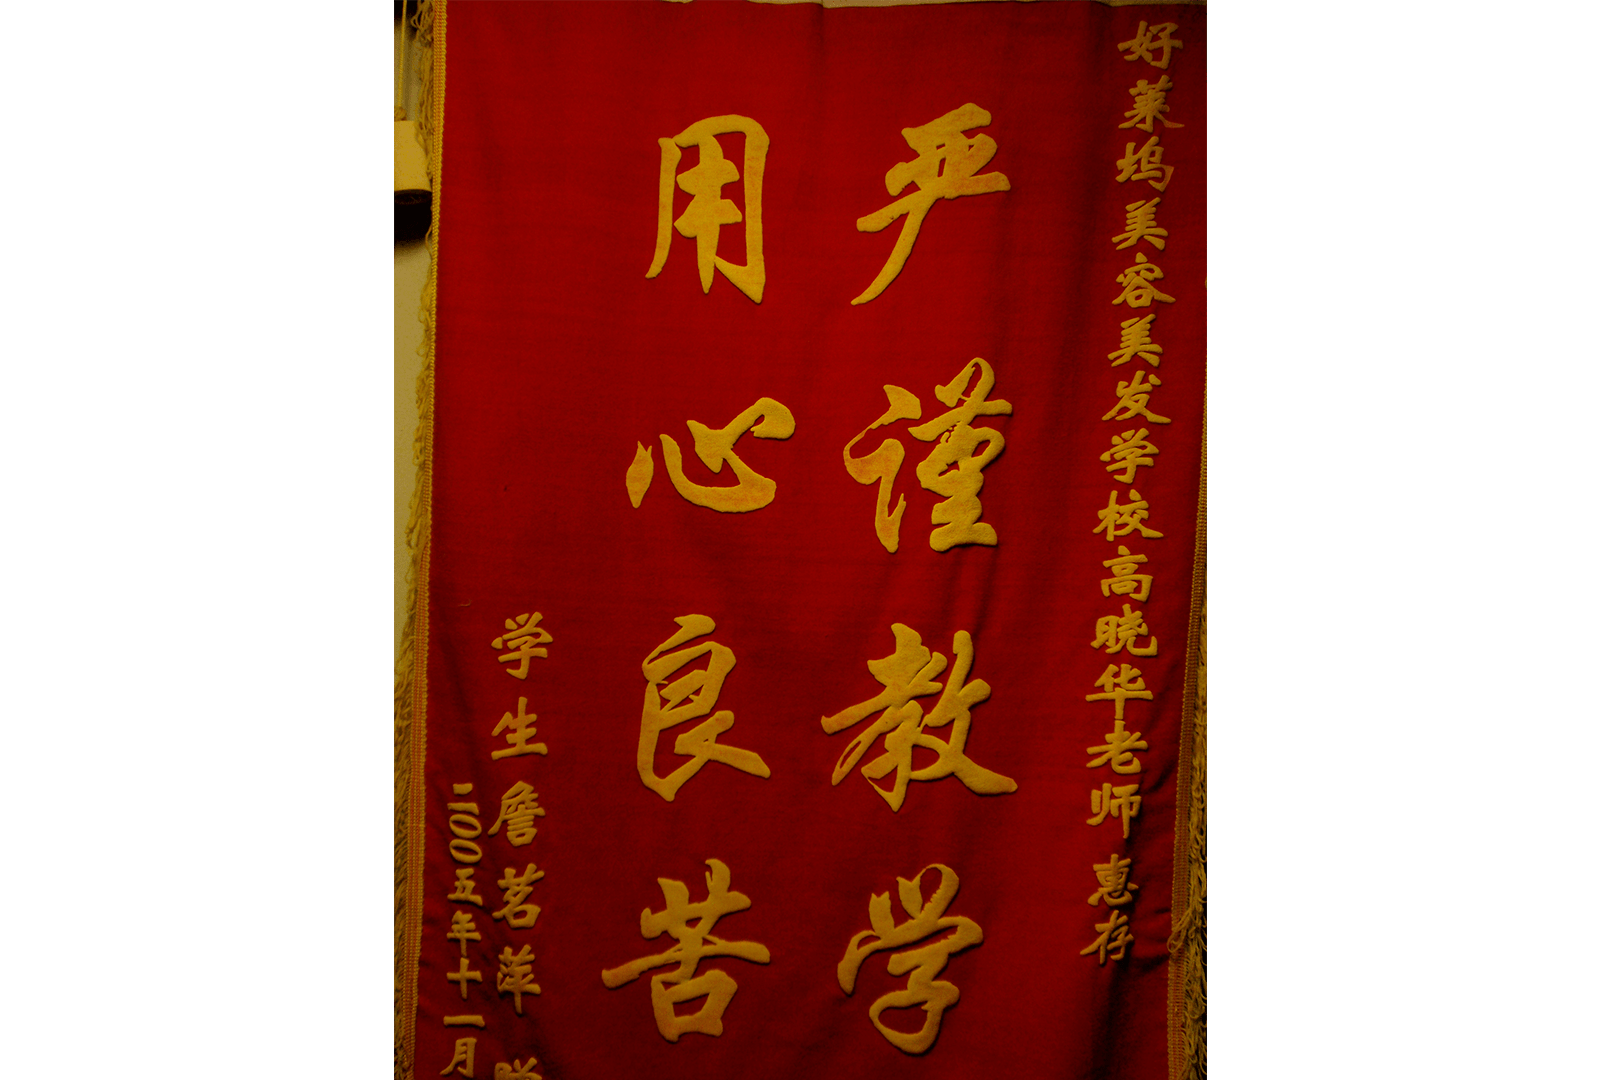 好莱坞美容美发学校高晓华老师 惠存
严谨教学
用心良苦
学生 詹茗萍
二00五年十一月